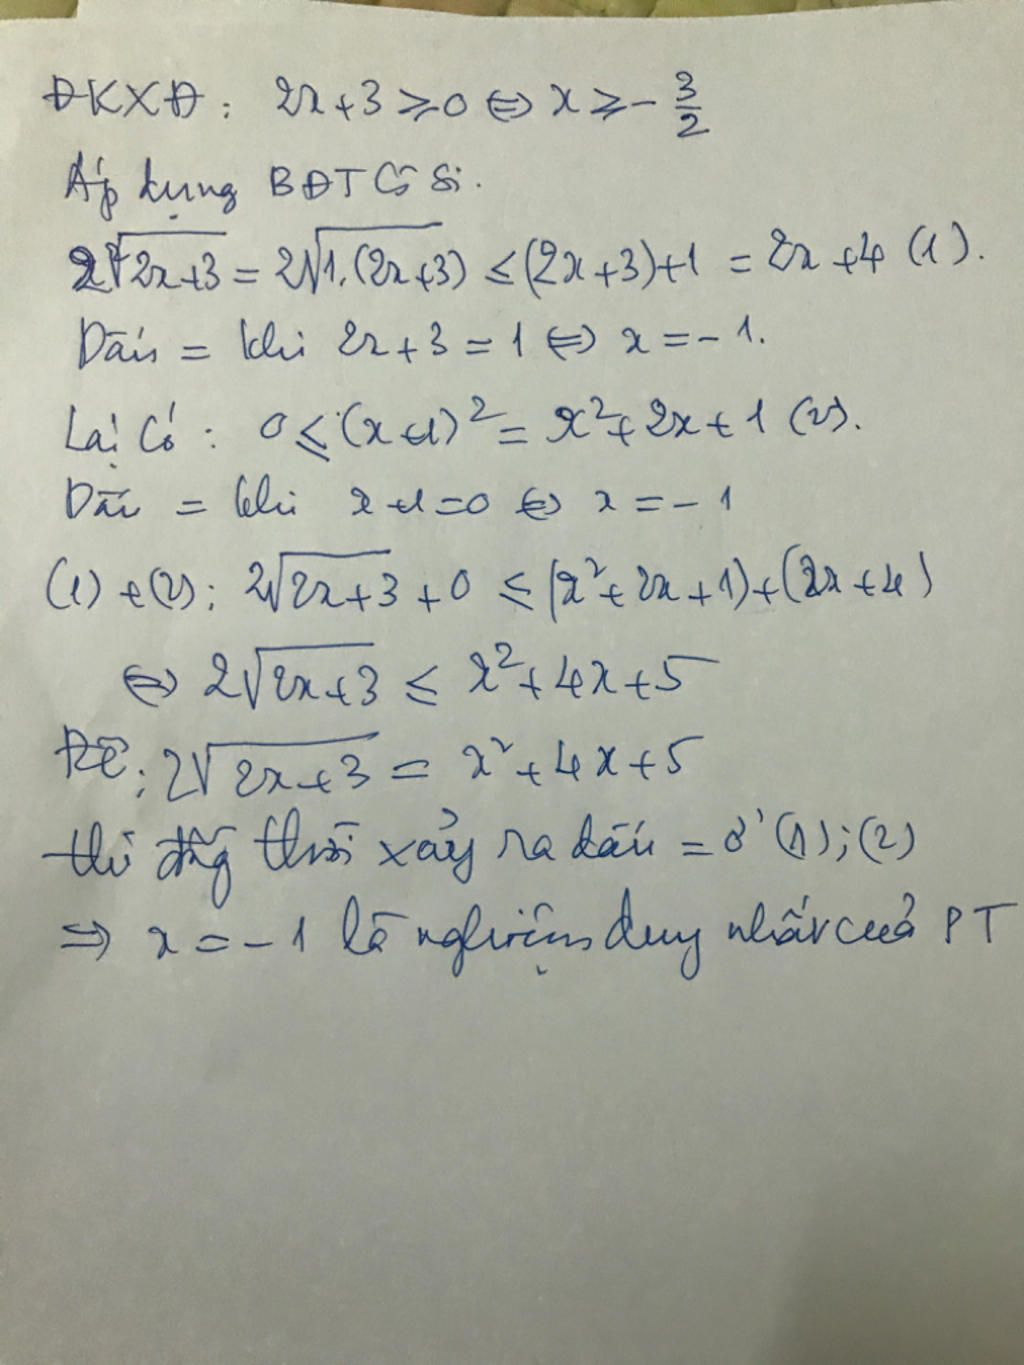 ĐKXĐ: 2x+3 ≥ 0 ⇔ x ≥ - 3/2
Áp dụng BĐT Cô Si.
2√(2x+3) = 2√(1.(2x+3)) ≤ (2x+3)+1 = 2x+4 (1).
Dấu = khi 2x+3 = 1 ⇔ x = -1.
Lại có: 0 ≤ (x+1)² = x²+2x+1 (2).
Dấu = khi x+1=0 ⇔ x = -1
(1)+(2): 2√(2x+3) + 0 ≤ (x²+2x+1)+(2x+4)
⇔ 2√(2x+3) ≤ x²+4x+5
Để: 2√(2x+3) = x²+4x+5
thì đồng thời xảy ra dấu = ở (1);(2)
⇒ x = -1 là nghiệm duy nhất của PT